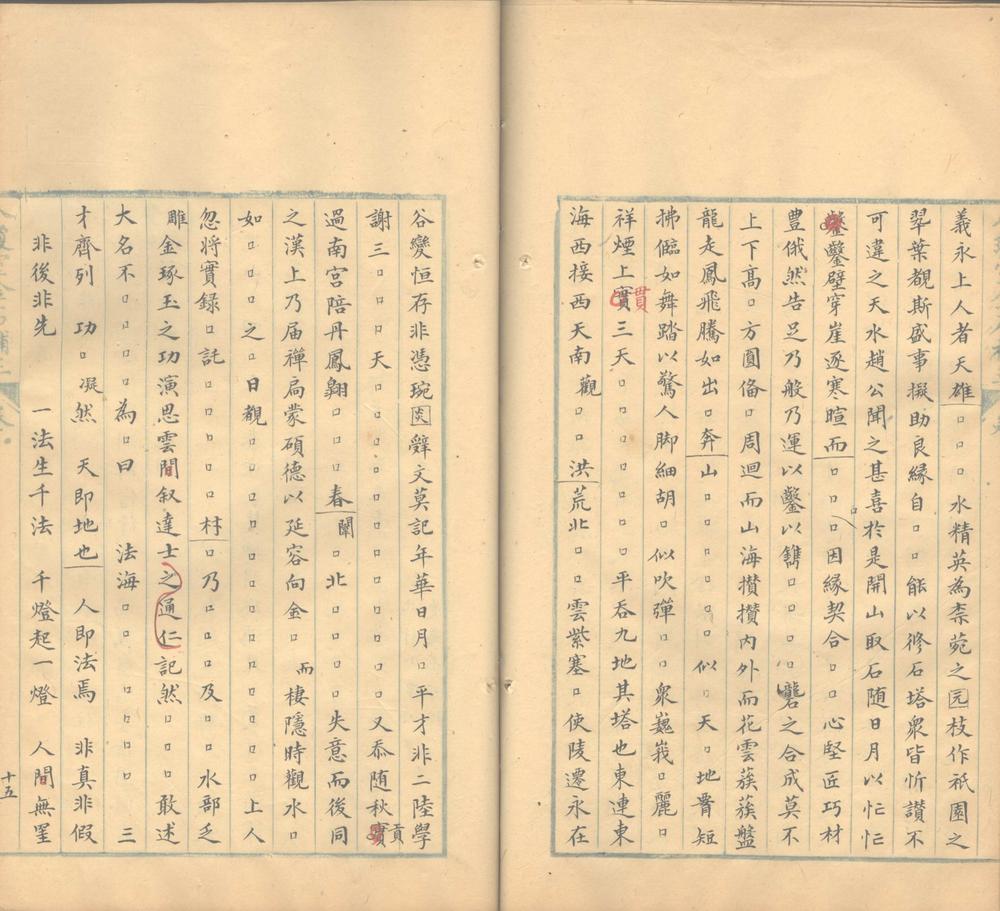 義永上人者天雄□□□水精英為柰菀之园枝作祇園之
翠葉覩斯盛事擬助良緣自□□能以修石塔衆皆忻讃不
可違之天水趙公聞之甚喜於是開山取石随日月以忙忙
鑿壁穿崖逐寒暄而□□□□因緣契合□□心堅匠巧材
豊俄然告足乃般乃運以鑿以鐫□□□□礱之合成莫不
上下高□方圓俻□周迴而山海攅攅内外而花雲蔟蔟盤
龍走鳳飛騰如出奔山□□□□□□似□天□地脊短
拂偘如舞踏以驚人脚細胡□似吹彈□□衆巍峩□麗□
祥煙上實三天□□□□□□平吞九地其塔也東連東
貫
海西接西天南觀□□洪荒北□□雲紫塞□使陵遷永在
谷變恒存非憑琬囸辤文莫記年華日月□平才非二陸學
謝三□□天□□□□□□□□□□□又忝随秋實
貢
過南宮陪丹鳳翺□□□春闈□北□□□□失意而後同
之漢上乃届禅扃蒙碩德以延容向金□而棲隱時觀水□
如□□□之□日覩□□□□□□□□□□□□上人
忽將實録□託□□□□□材□乃□□□及□□水部乏
雕金琢玉之功演思雲間叙達士之通仁記然□□□敢述
大名不□□□為曰　法海□□□□□□三
才齊列　功□凝然　天即地也　人即法焉　非真非假
非後非先　一法生千法　千燈起一燈　人間無罣
十五